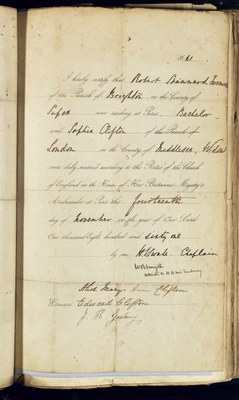 1861
I hereby certify that Robert
of the Parish of Brighton in the County of
Sussex now residing at Paris, Bachelor
and Sophia Clifton of the Parish of
London in the County of Middlesex,
were duly married according to the Rites of the Church
of England in the House of Her Britannic Majesty's
Ambassador at Paris this fourteenth
day of November in the year of Our Lord
One thousand Eight hundred and sixty one
by me Chaplain
Clifton
Witnesses Edward Clifton
J. H.